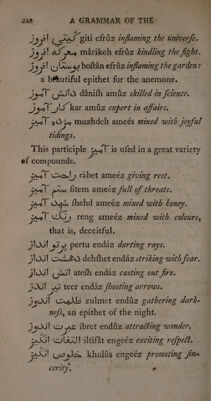 228 A GRAMMAR OF THE
گیتي افروز giti efrûz inflaming the universe.
معرکه افروز mârikeh efrûz kindling the fight.
بوستان افروز bostân efrûz inflaming the garden:
a beautiful epithet for the anemone.
دانش آموز dânish amûz skilled in science.
کار آموز kar amûz expert in affairs.
مژده آمیز muzhdeh ameéz mixed with joyful
tidings.
This participle آمیز is used in a great variety
of compounds.
راحت آمیز râhet ameéz giving rest.
ستم آمیز sitem ameéz full of threats.
شهد آمیز shehd ameéz mixed with honey.
رنگ آمیز reng ameéz mixed with colours,
that is, deceitful.
پرتو انداز pertu endáz darting rays.
دهشت انداز dehshet endáz striking with fear.
آتش انداز atesh endáz casting out fire.
تیر انداز teer endáz shooting arrows.
ظلمت اندوز zulmet endûz gathering dark-
ness, an epithet of the night.
عبرت اندوز ibret endûz attracting wonder.
التفات انگیز iltifât engeéz exciting respect.
خلوص انگیز khulûs engeéz promoting sin-
cerity.